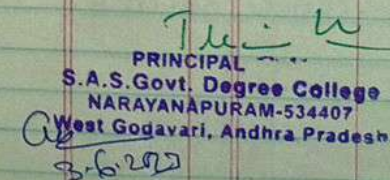 PRINCIPAL
S.A.S.Govt. Degree College
NARAYANAPURAM-534407
West Godavari, Andhra Pradesh